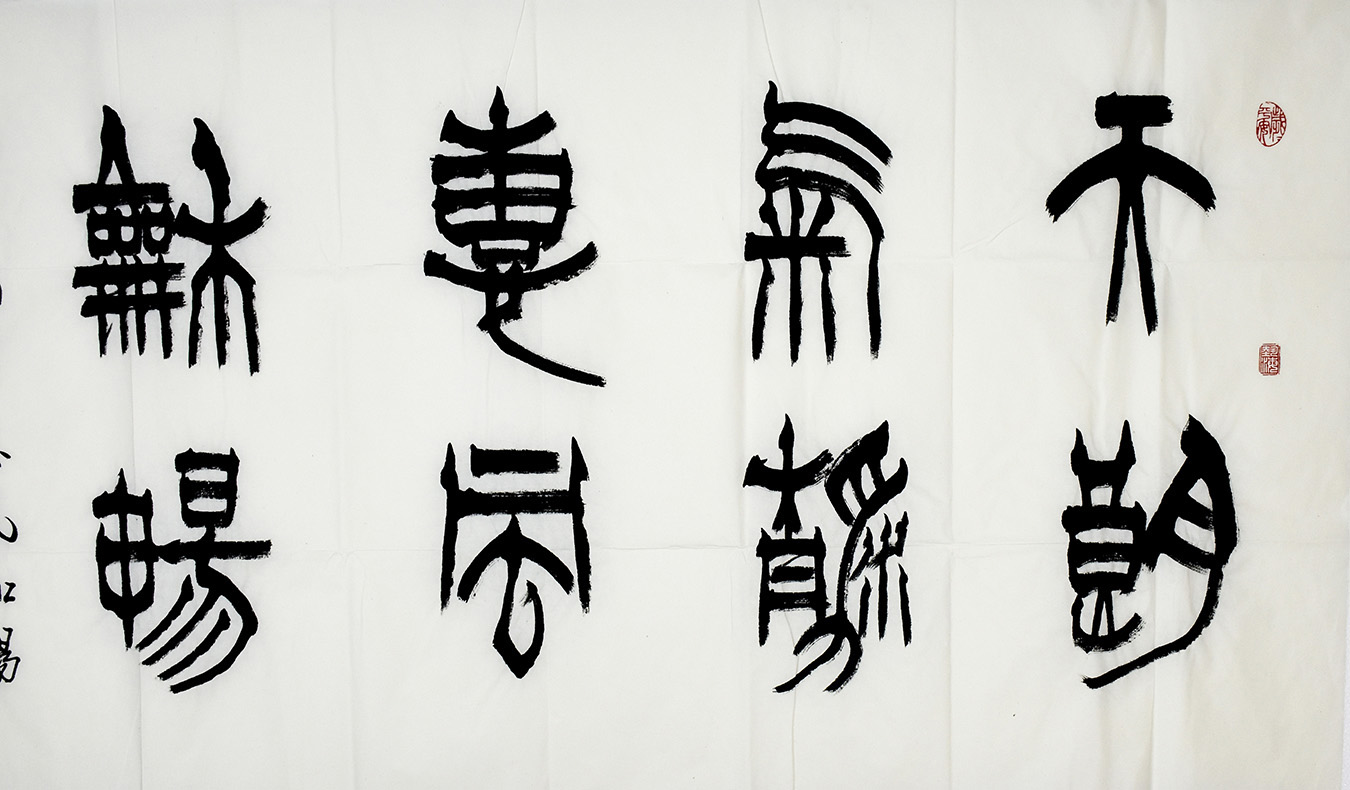 天朗
氣清
惠風
龢暢